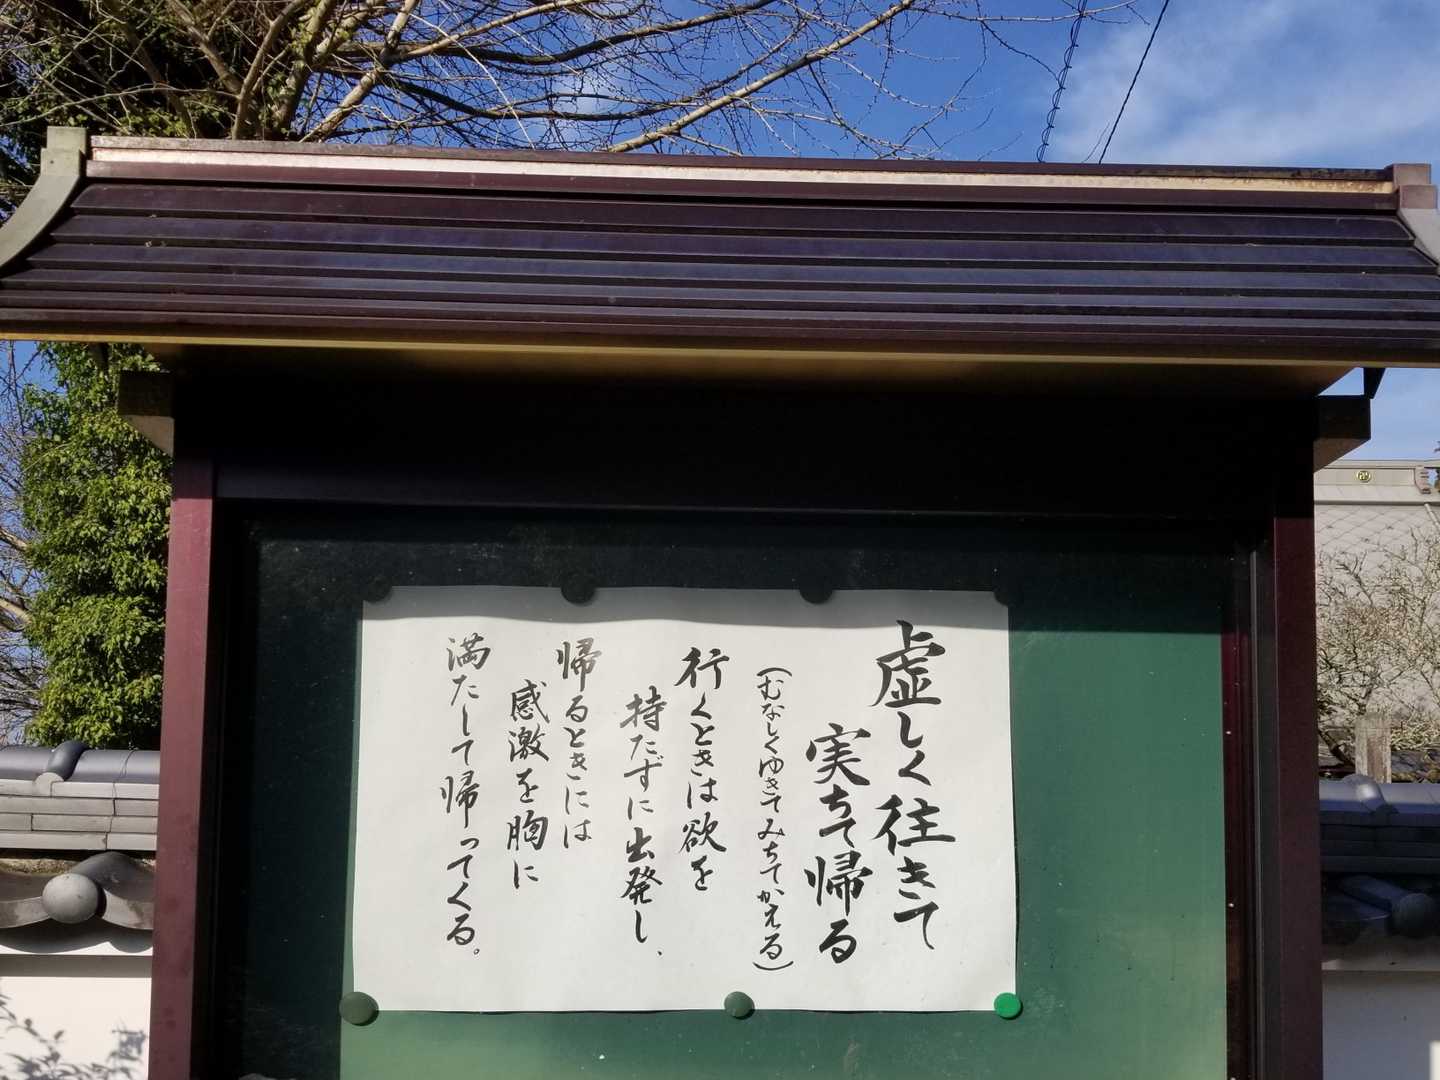 虚しく往きて
実ちて帰る
(むなしくゆきてみちてかえる)
行くときは欲を
持たずに出発し、
帰るときには
感激を胸に
満たして帰ってくる。